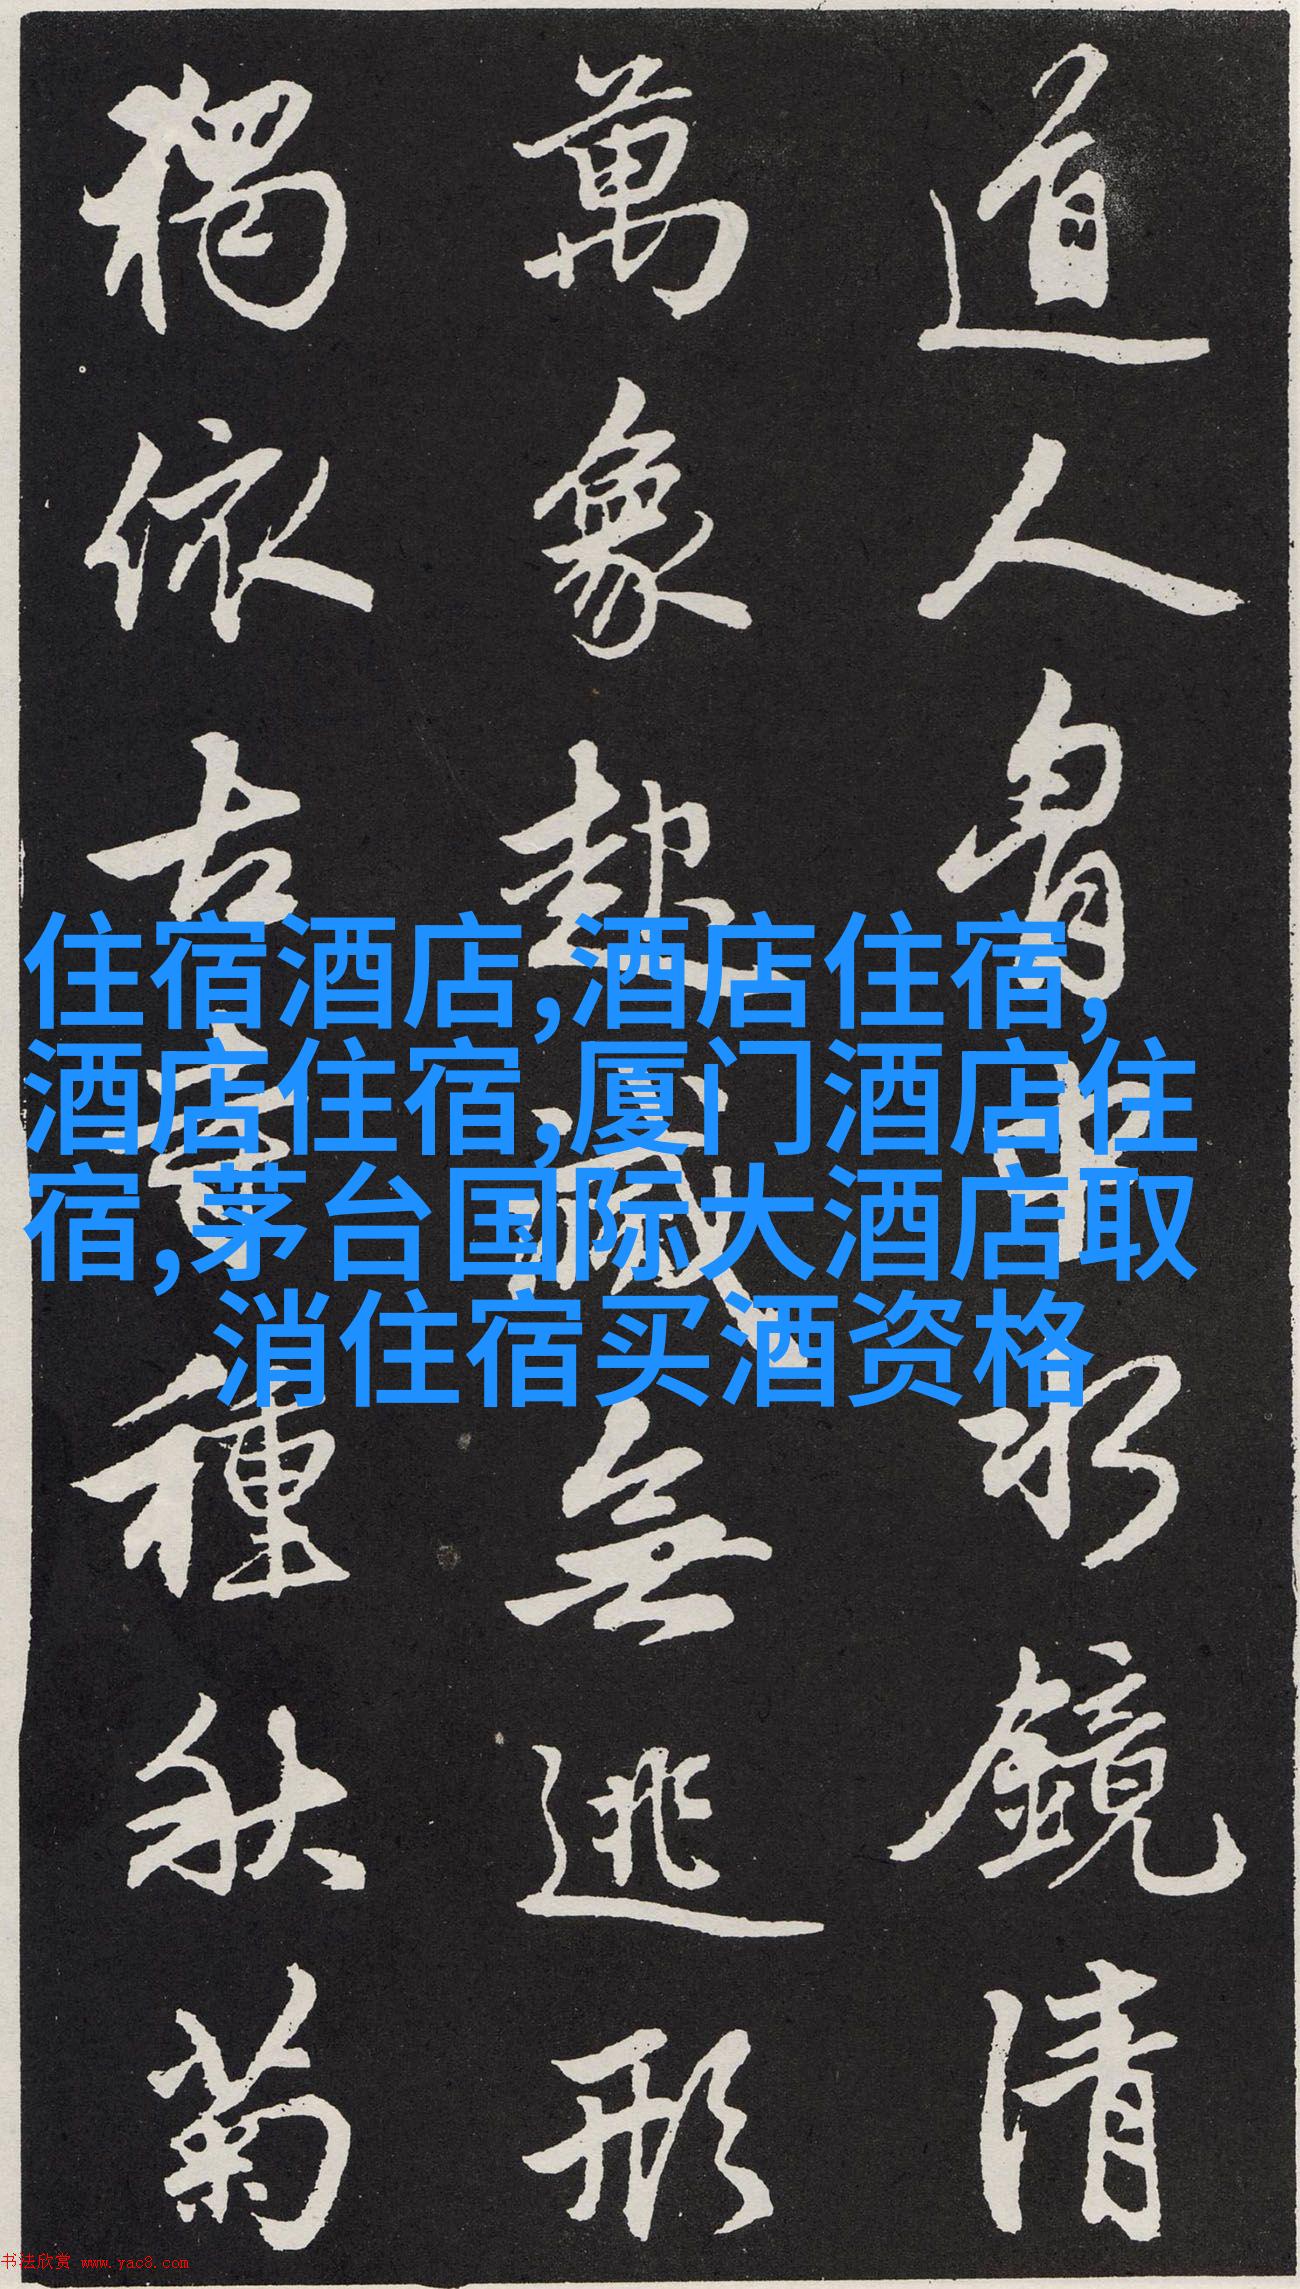 道人胷中水鏡清
萬象起滅無逃形
獨依古寺種秋菊
住宿酒店,酒店住宿,
酒店住宿,厦门酒店住
宿,茅台国际大酒店取
消住宿买酒资格
书法欣赏 www.yac8.com